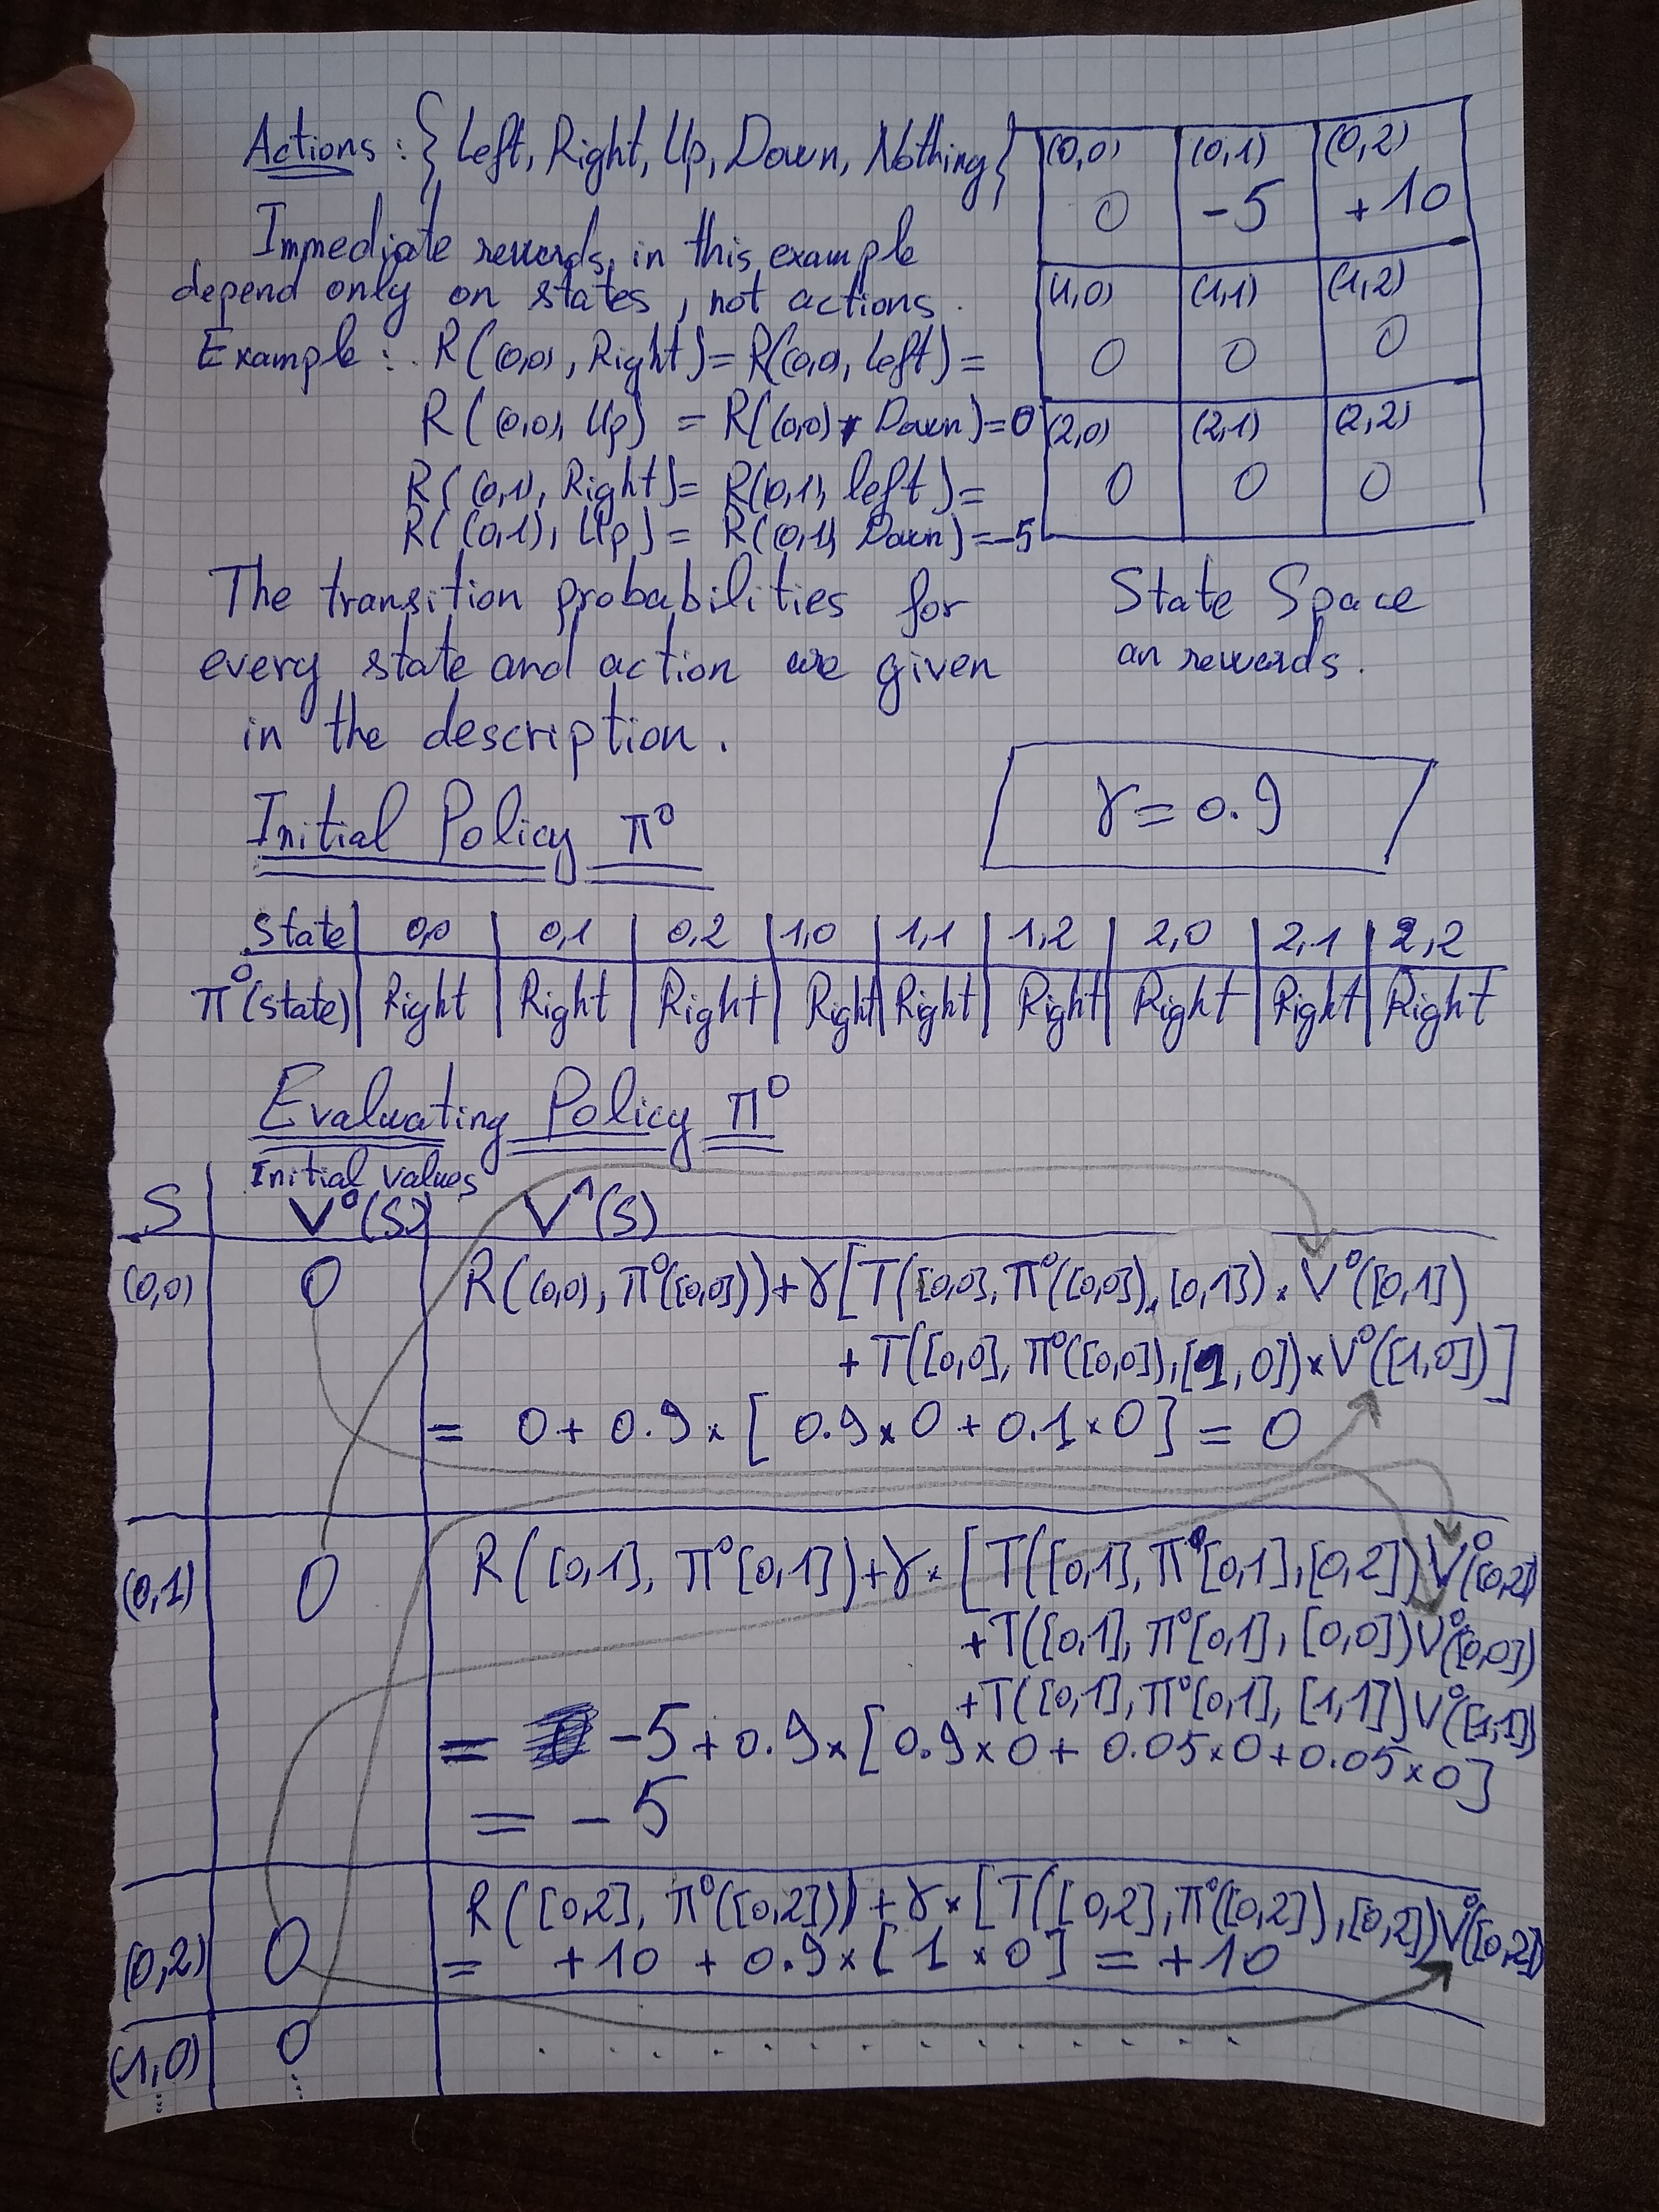 Actions : { Left, Right, Up, Down, Nothing }
Immediate rewards in this example
depend only on states, not actions.
Example : R((0,0), Right) = R((0,0), Left) =
R((0,0), Up) = R((0,0), Down) = 0
R((0,1), Right) = R((0,1), left) =
R((0,1), Up) = R((0,1), Down) = -5
(0,0) (0,1) (0,2)
0 -5 +10
(1,0) (1,1) (1,2)
0 0 0
(2,0) (2,1) (2,2)
0 0 0
State Space
an rewards.
The transition probabilities for
every state and action are given
in the description.
γ = 0.9
Initial Policy π⁰
State 0,0 0,1 0,2 1,0 1,1 1,2 2,0 2,1 2,2
π⁰(state) Right Right Right Right Right Right Right Right Right
Evaluating Policy π⁰
Initial values
S V⁰(S) V¹(S)
(0,0) 0 R((0,0), π⁰([0,0])) + γ[T([0,0], π⁰([0,0]), [0,1]) × V⁰([0,1])
+ T([0,0], π⁰([0,0]), [1,0]) × V⁰([1,0])]
= 0 + 0.9 × [ 0.9 × 0 + 0.1 × 0 ] = 0
(0,1) 0 R([0,1], π⁰[0,1]) + γ × [T([0,1], π⁰[0,1], [0,2]) V⁰([0,2])
+ T([0,1], π⁰[0,1], [0,0]) V⁰([0,0])
+ T([0,1], π⁰[0,1], [1,1]) V⁰([1,1])
= -5 + 0.9 × [ 0.9 × 0 + 0.05 × 0 + 0.05 × 0 ]
= -5
(0,2) 0 R([0,2], π⁰([0,2])) + γ × [T([0,2], π⁰([0,2]), [0,2]) V⁰([0,2])
= +10 + 0.9 × [ 1 × 0 ] = +10
(1,0) 0 . . . . . . . . . . . . .